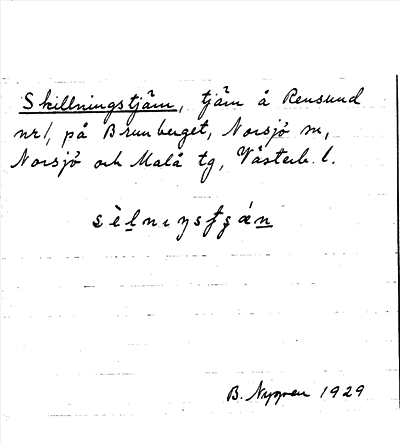 Skillningstjärn, tjärn å Rensund
nr 1, på Brunberget, Norsjö sn,
Norsjö och Malå tg, Västerb. l.
sèlnıŋsʈʂǽn
B. Nygren 1929